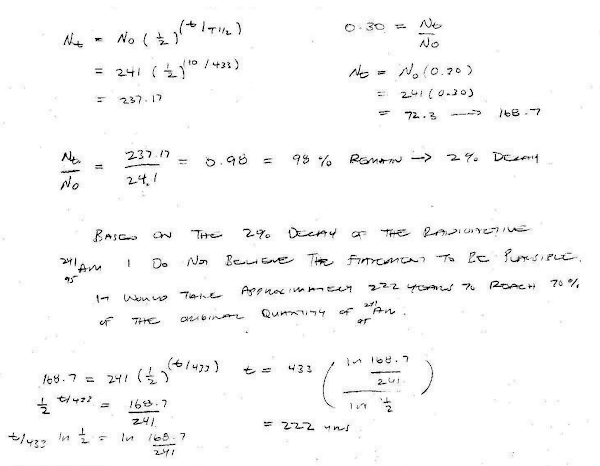 Nt = No (1/2)^(t/T1/2)
= 241 (1/2)^(10/433)
= 237.17
0.30 = Nt/No
Nt = No(0.30)
= 241(0.30)
= 72.3 → 168.7
Nt/No = 237.17/24.1 = 0.98 = 98% REMAIN → 2% DECAY
BASED ON THE 2% DECAY OF THE RADIOACTIVE
241/95 AM I DO NOT BELIEVE THE STATEMENT TO BE PLAUSIBLE.
IT WOULD TAKE APPROXIMATELY 222 YEARS TO REACH 70%
OF THE ORIGINAL QUANTITY OF 241/95 AM.
168.7 = 241 (1/2)^(t/433)
1/2^t/433 = 168.7/241
t/433 ln 1/2 = ln 168.7/241
t = 433 (ln 168.7/241 / ln 1/2)
= 222 yrs